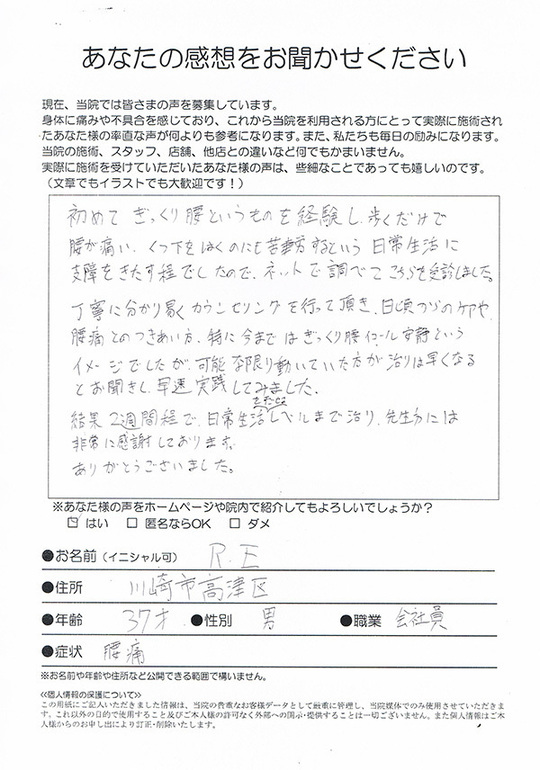 あなたの感想をお聞かせください
現在、当院では皆さまの声を募集しています。
身体に痛みや不具合を感じており、これから当院を利用される方にとって実際に施術され
たあなた様の率直な声が何よりも参考になります。また、私たちも毎日の励みになります。
当院の施術、スタッフ、店舗、他店との違いなど何でもかまいません。
実際に施術を受けていただいたあなた様の声は、些細なことであっても嬉しいのです。
（文章でもイラストでも大歓迎です！）
初めて ぎっくり腰というものを経験し、歩くだけで
腰が痛い、くつ下をはくのにも苦労するという 日常生活に
支障をきたす程でしたので、ネットで調べてこちらを受診しました。
丁寧に分かり易くカウンセリングを行って頂き、日頃からのケアや
腰痛とのつきあい方、特に今まではぎっくり腰イコール安静という
イメージでしたが、可能な限り動いていた方が治りは早くなる
とお聞きし、早速実践してみました。
結果 2週間程で、日常生活レベルまで治り、先生方には
非常に感謝しております。
ありがとうございました。
※あなた様の声をホームページや院内で紹介してもよろしいでしょうか？
☑ はい □ 匿名ならOK □ ダメ
●お名前（イニシャル可） R.E
●住所 川崎市高津区
●年齢 37才 ●性別 男 ●職業 会社員
●症状 腰痛
※お名前や年齢や住所など公開できる範囲で構いません。
≪個人情報の保護について≫
この用紙にご記入いただきました情報は、当院の貴重なお客様データとして厳重に管理し、当院媒体でのみ使用させていただきま
す。これ以外の目的で使用すること及びご本人様の許可なく外部への開示・提供することは一切ございません。また個人情報はご本
人様からのお申し出により訂正・削除いたします。